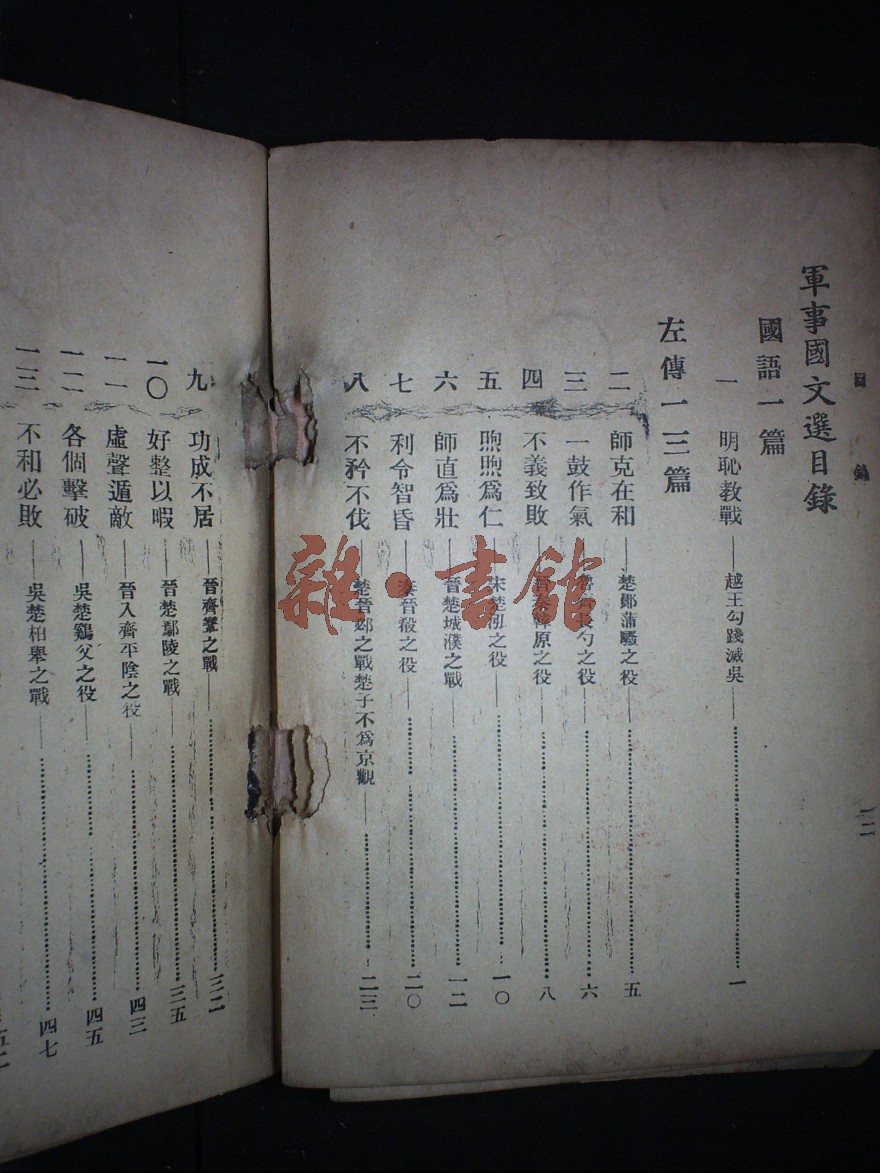 目錄
一二
軍事國文選目錄
國語一篇
一 明恥教戰——越王勾踐滅吳——一
左傳一三篇
二 師克在和——楚鄖蒲騷之役——五
三 一鼓作氣——長勺之役——六
四 不義致敗——韓原之役——八
五 煦煦爲仁——宋楚泓之役——一〇
六 師直爲壯——晉楚城濮之戰——一二
七 利令智昏——秦晉殽之役——二〇
八 不矜不伐——楚晉邲之戰楚子不爲京觀——二三
九 功成不居——晉齊鞌之戰——三二
一〇 好整以暇——晉楚鄢陵之戰——三五
一一 虛聲遁敵——晉入齊平陰之役——四三
一二 各個擊破——吳楚鷄父之役——四五
一三 不和必敗——吳楚柏舉之戰——四七
雜·書館